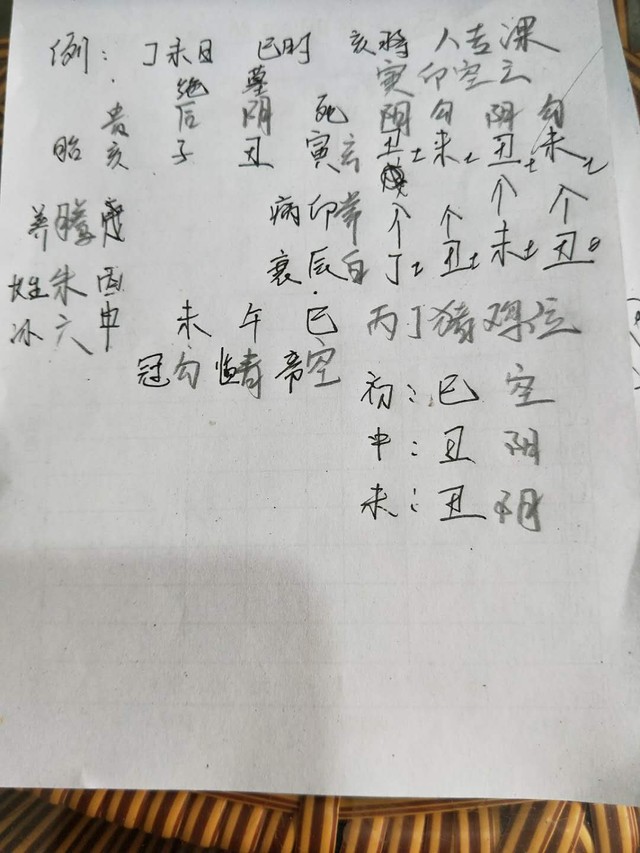 例：丁未日 巳时 亥将 人去课
绝 墓 寅卯空亡
贵 后 阴 死 阴 勾 阴 勾
胎 亥 子 丑 寅玄 丑土未土丑土未土
养 螣 戌 病卯常 个 个 个 个
衰辰白 丁 丑土未土丑
长生朱酉
沐六申 未 午 巳 丙丁猪鸡位
冠勾 临青 帝空
初：巳 空
中：丑 阴
末：丑 阴